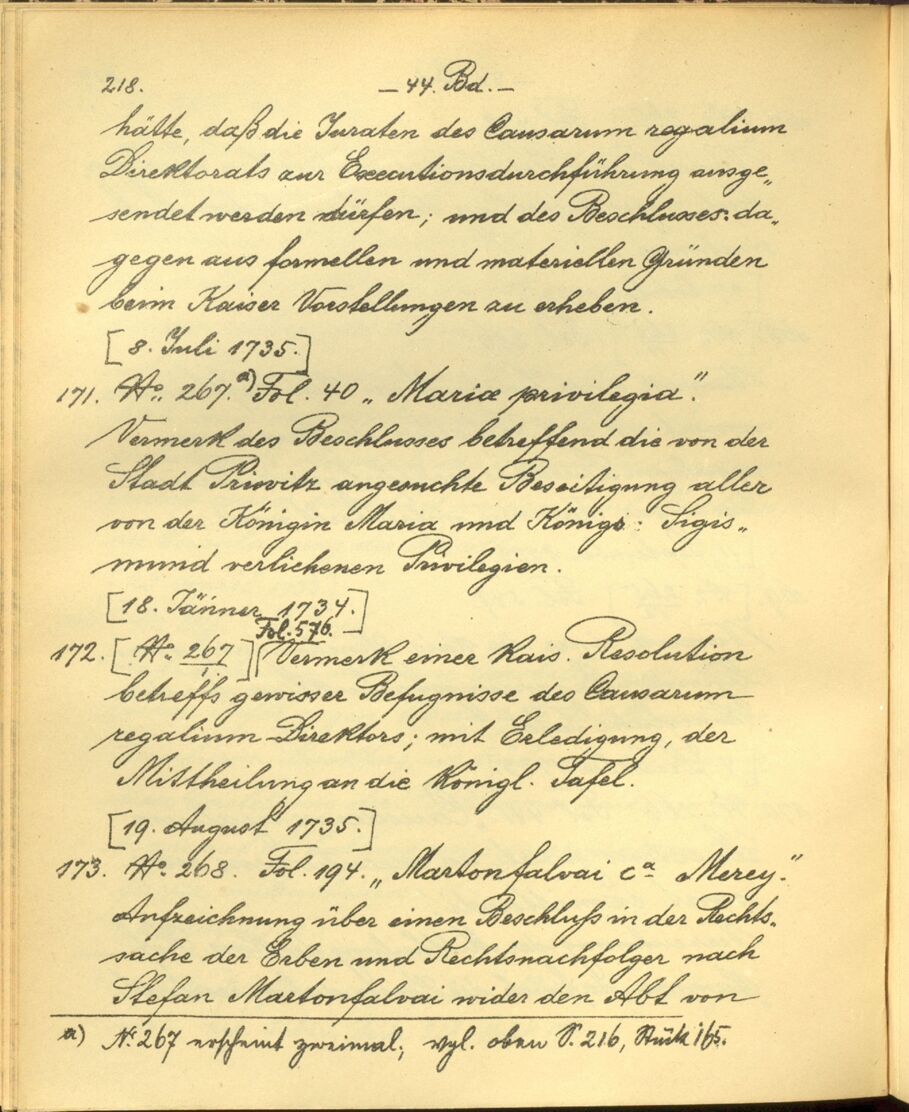 218. — 44. Bd. —
hätte, daß die Juraten des Causarum regalium
Direktorats zur Executionsdurchführung ausge„
sendet werden dürfen; und des Beschlusses: da„
gegen aus formellen und materiellen Gründen
beim Kaiser Vorstellungen zu erheben.
[8. Juli 1735.]
171. No. 267.a) Fol. 40 „Mariæ privilegia“.
Vermerk des Beschlusses betreffend die von der
Stadt Privitz angesuchte Beseitigung aller
von der Königin Maria und Königs: Sigis„
mund verliehenen Privilegien.
[18. Jänner 1734.]
Fol. 576.
172. [No. 267/1] Vermerk einer kais. Resolution
betreffs gewisser Befugnisse des Causarum
regalium Direktors; mit Erledigung, der
Mittheilung an die Königl. Tafel.
[19. August 1735.]
173. No. 268. Fol. 194. „Martonfalvai ca Merey“.
Aufzeichnung über einen Beschluß in der Rechts„
sache der Erben und Rechtsnachfolger nach
Stefan Martonfalvai wider den Abt von
a) No. 267 erscheint zweimal; vgl. oben S. 216, Stück 165.